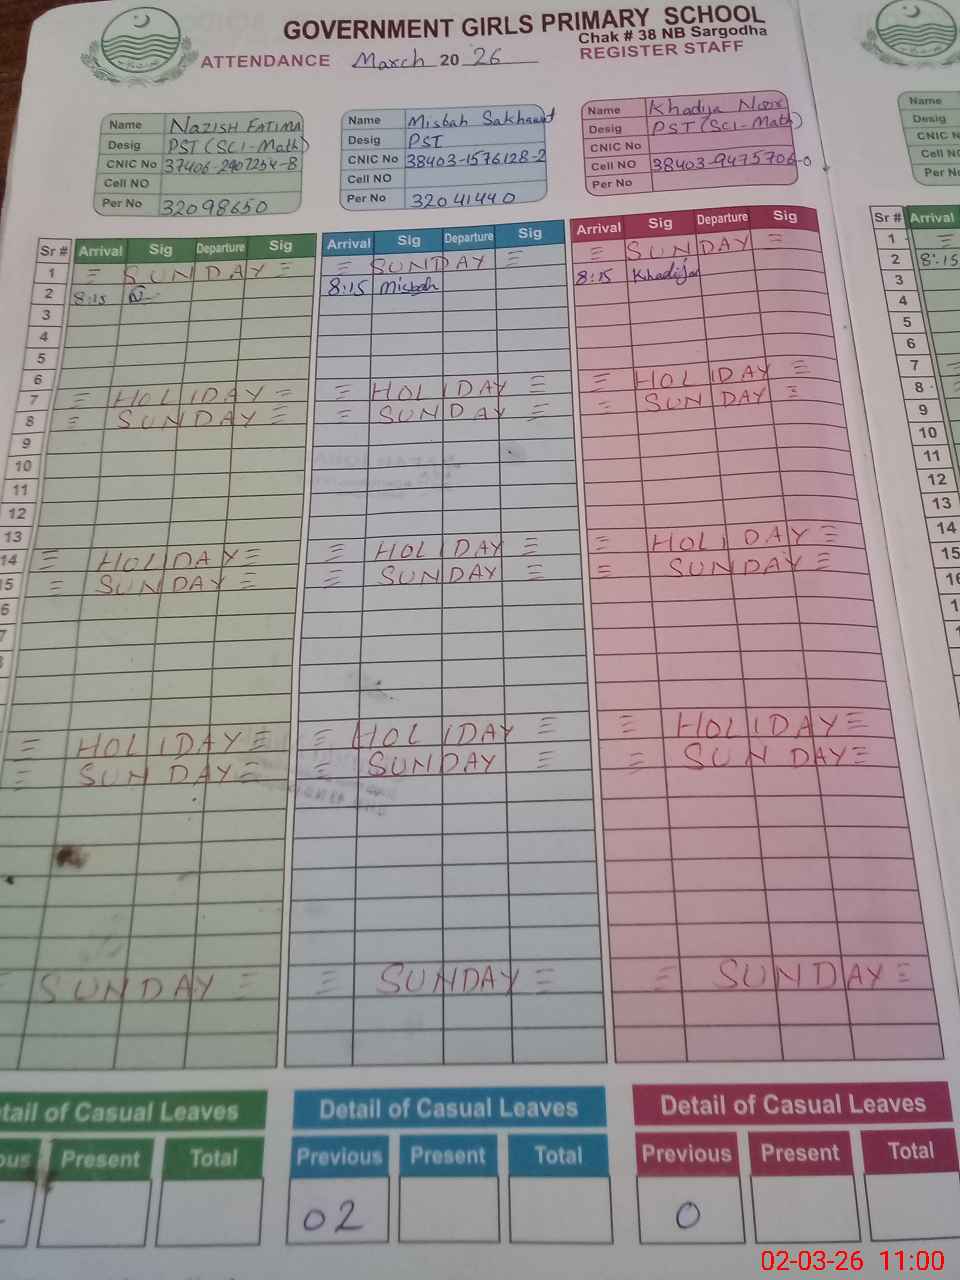 GOVERNMENT GIRLS PRIMARY SCHOOL
Chak # 38 NB Sargodha
ATTENDANCE March 20 26 REGISTER STAFF
Name Nazish Fatima
Desig PST (SCI-Math)
CNIC No 37406-2907254-8
Cell NO
Per No 32098650
Name Misbah Sakhawat
Desig PST
CNIC No 38403-1576128-2
Cell NO
Per No 32041440
Name Khadija Noor
Desig PST (Sci-Math)
CNIC No
Cell NO 38403-9475706-0
Per No
Name
Desig
CNIC N
Cell N
Per N
Sr # Arrival Sig Departure Sig Arrival Sig Departure Sig Arrival Sig Departure Sig Sr # Arrival
1 SUNDAY SUNDAY SUNDAY 1
2 8:15 8:15 misbah 8:15 Khadija 2 8:15
3 3
4 4
5 5
6 6
7 HOLIDAY HOLIDAY HOLIDAY 7
8 SUNDAY SUNDAY SUNDAY 8
9 9
10 10
11 11
12 12
13 13
14 HOLIDAY HOLIDAY HOLIDAY 14
15 SUNDAY SUNDAY SUNDAY 15
6 16
7
HOLIDAY HOLIDAY HOLIDAY
SUNDAY SUNDAY SUNDAY
SUNDAY SUNDAY SUNDAY
tail of Casual Leaves Detail of Casual Leaves Detail of Casual Leaves
ous Present Total Previous Present Total Previous Present Total
02 0
02-03-26 11:00